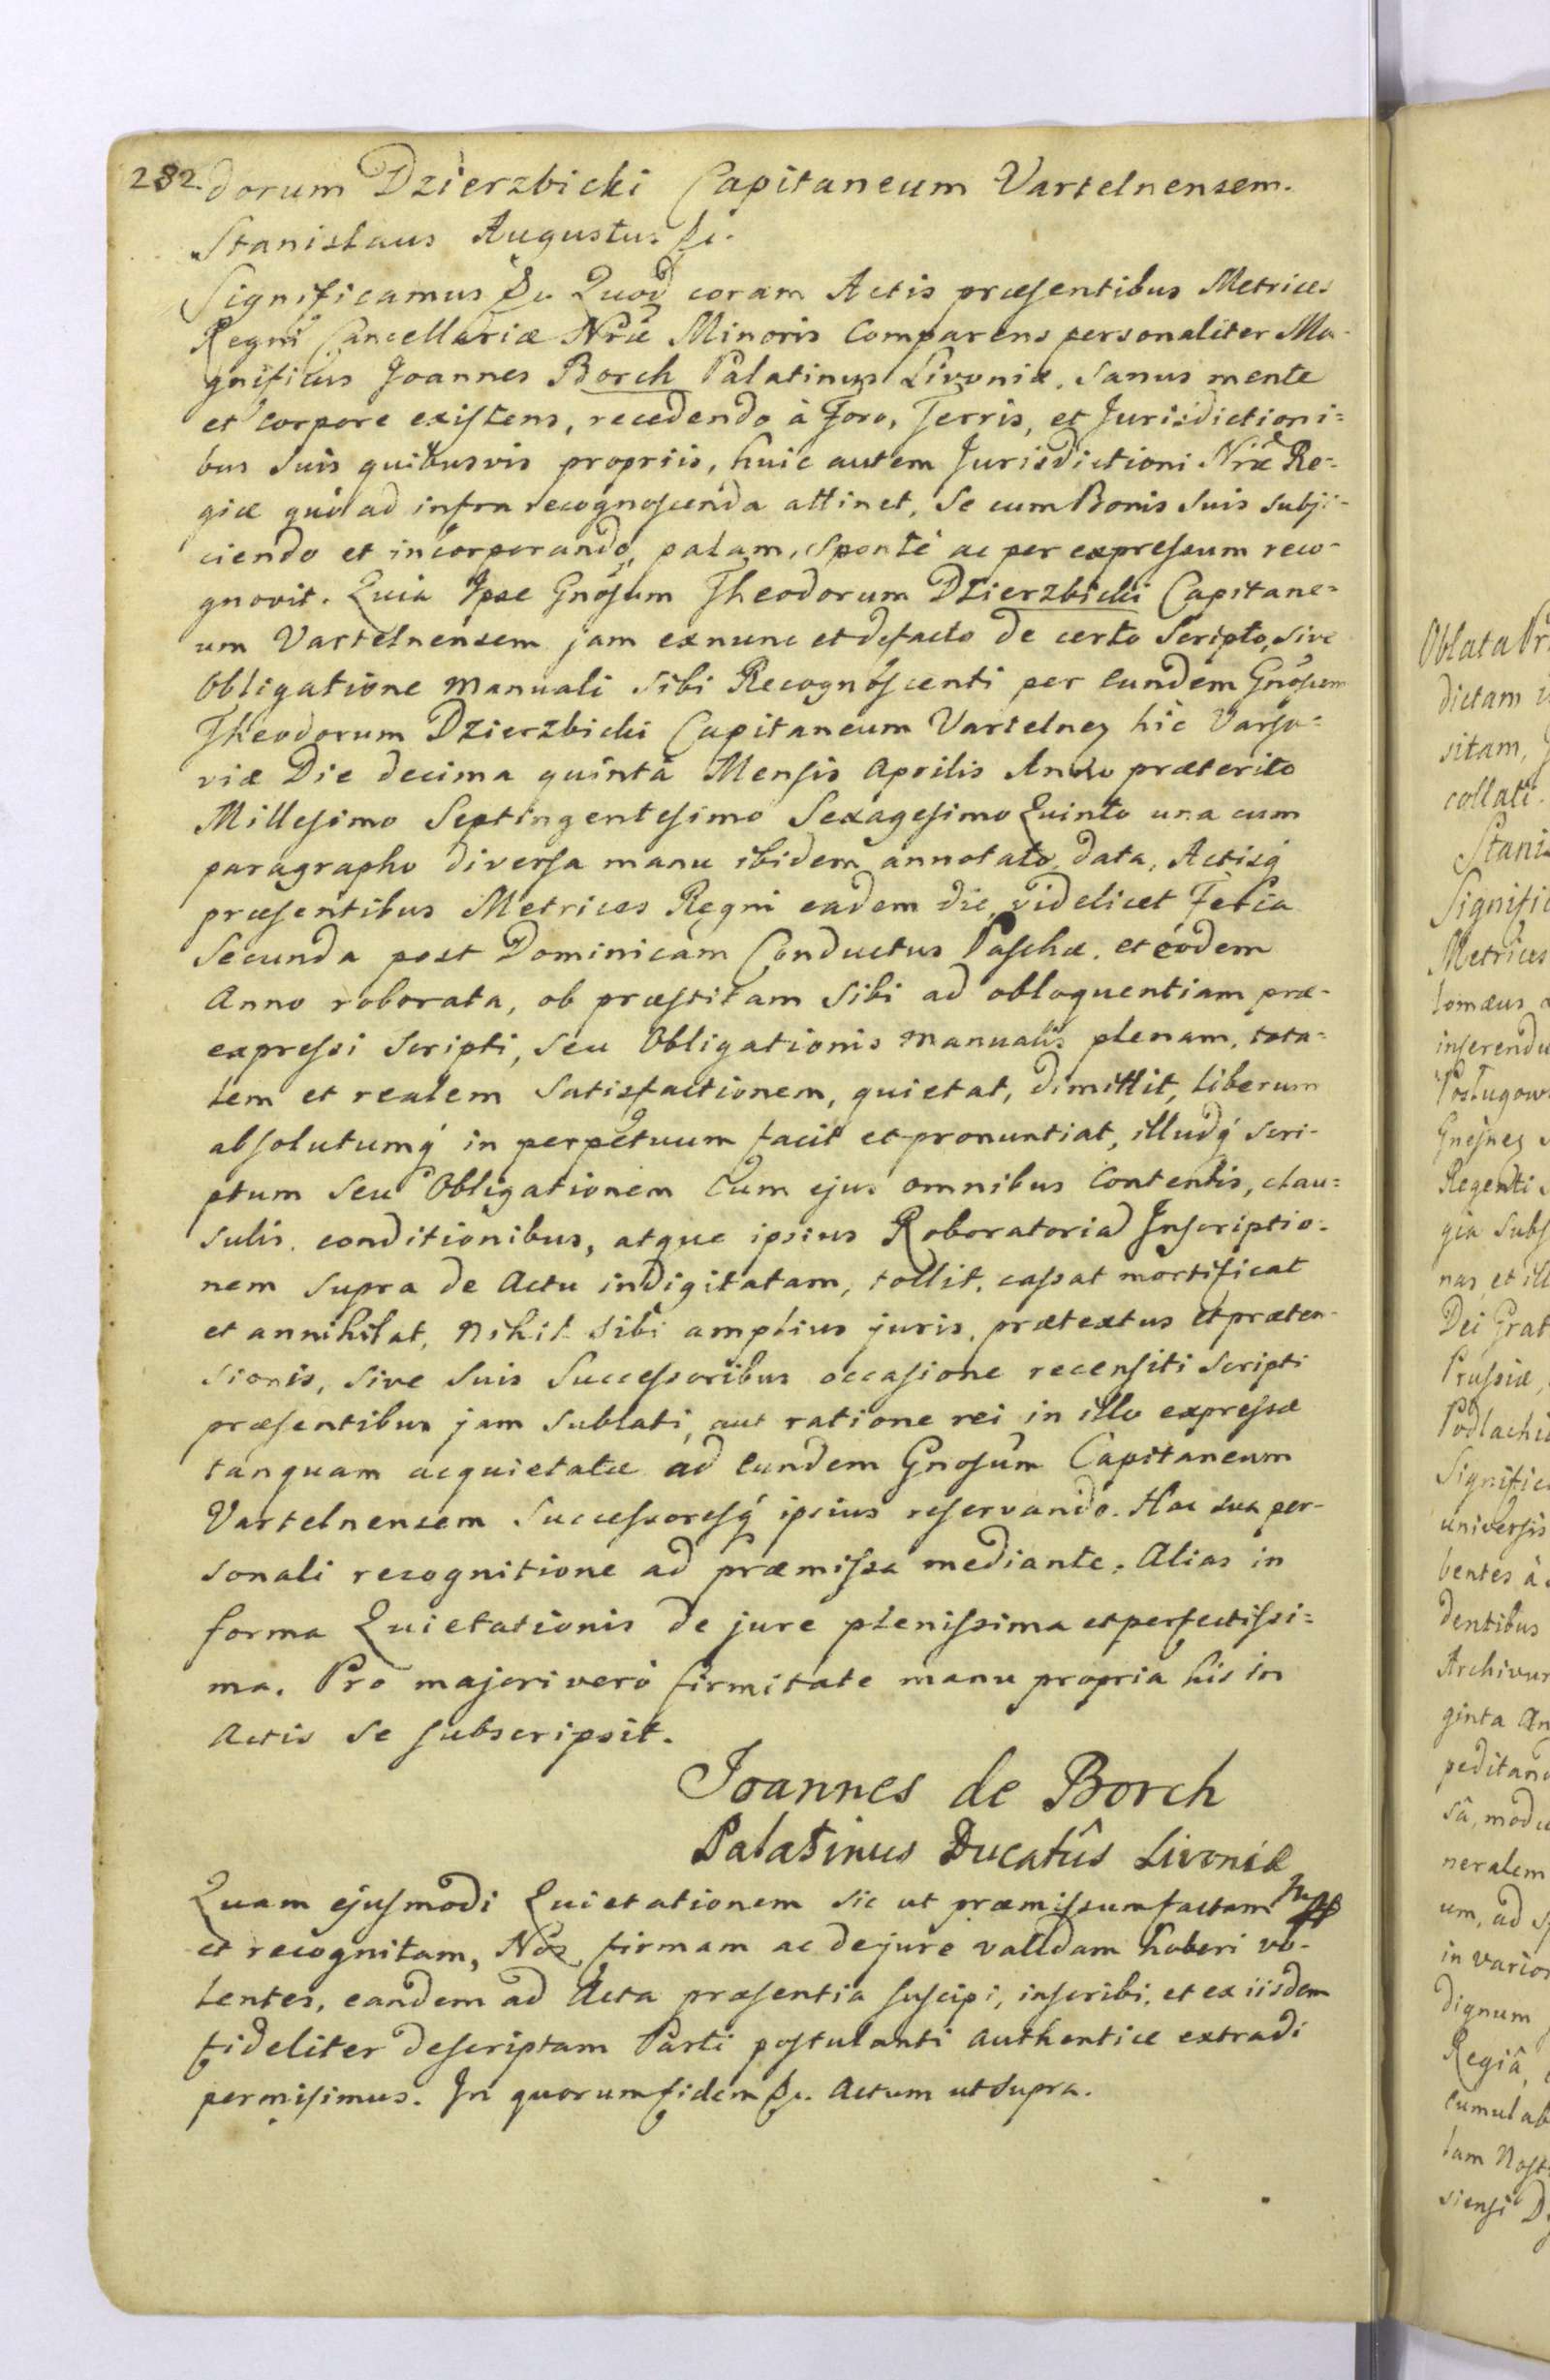 282
dorum Dzierzbicki Capitaneum Vartelnensem.
Stanislaus Augustus &c.
Significamus &c. Quod coram Actis præsentibus Metrices
Regni Cancellariæ Nræ Minoris Comparens personaliter Ma-
gnificus Joannes Borch Palatinus Livoniæ, sanus mente
et corpore existens, recedendo à Foro, Terris, et Jurisdictioni=
bus suis quibusvis propriis, huic autem Jurisdictioni Nræ Re=
giæ quo ad infra recognoscenda attinet, se cum Bonis suis subji-
ciendo et incorporando, palam, sponte ac per expressum reco-
gnovit. Quia Ipse Gnosum Theodorum Dzierzbicki Capitane=
um Vartelnensem jam exnunc et defacto de certo Scripto, sive
Obligatione manuali sibi Recognoscenti per eundem Gnosum
Theodorum Dzierzbicki Capitaneum Vartelnez hic Varsa=
viæ Die decima quinta Mensis Aprilis Anno præterito
Millesimo Septingentesimo Sexagesimo Quinto una cum
paragrapho diversa manu ibidem annotato, data, Actisq́
præsentibus Metrices Regni eadem die, videlicet Feria
Secunda post Dominicam Conductus Paschæ. et eodem
Anno roborata, ob præstitam sibi ad obloquentiam præ-
expressi scripti, seu Obligationis manualis plenam, tota=
lem et realem satisfactionem, quietat, dimittit, liberum
absolutumq́ in perpetuum facit et pronuntiat, illudq́ scri-
ptum seu Obligationem cum ejus omnibus contentis, clau=
sulis. conditionibus, atque ipsius Roboratoria Inscriptio=
nem supra de Actu indigitatam, tollit, cassat mortificat
et annihilat, nihil sibi amplius juris, prætextus et præten-
sionis, sive suis Successoribus occasione recensiti scripti
præsentibus jam sublati, aut ratione rei in illo expressæ
tanquam acquietatæ ad eundem Gnosum Capitaneum
Vartelnensem Successoresq́ ipsius reservando. Hac sua per-
sonali recognitione ad præmissa mediante. Alias in
forma Quietationis de jure plenissima et perfectissi=
ma. Pro majori verò firmitate manu propria his in
Actis se subscripsit.
Joannes de Borch
Palatinus Ducatûs Livoniæ
Quam ejusmodi Quietationem sic ut præmissum factam
et recognitam, Nos firmam ac de jure validam haberi vo-
lentes, eandem ad Acta præsentia suscipi, inscribi, et ex iisdem
fideliter descriptam Parti postulanti authentice extradi
permisimus. In quorum fidem &c. Actum ut supra.
Oblata
dictam
sitam,
collati
Metrices
Regenti
nas, et
Dei Grat
Prussiæ,
universis
bentes à
dentibus
ginta
neralem
um, ad
dignum
Regiâ,